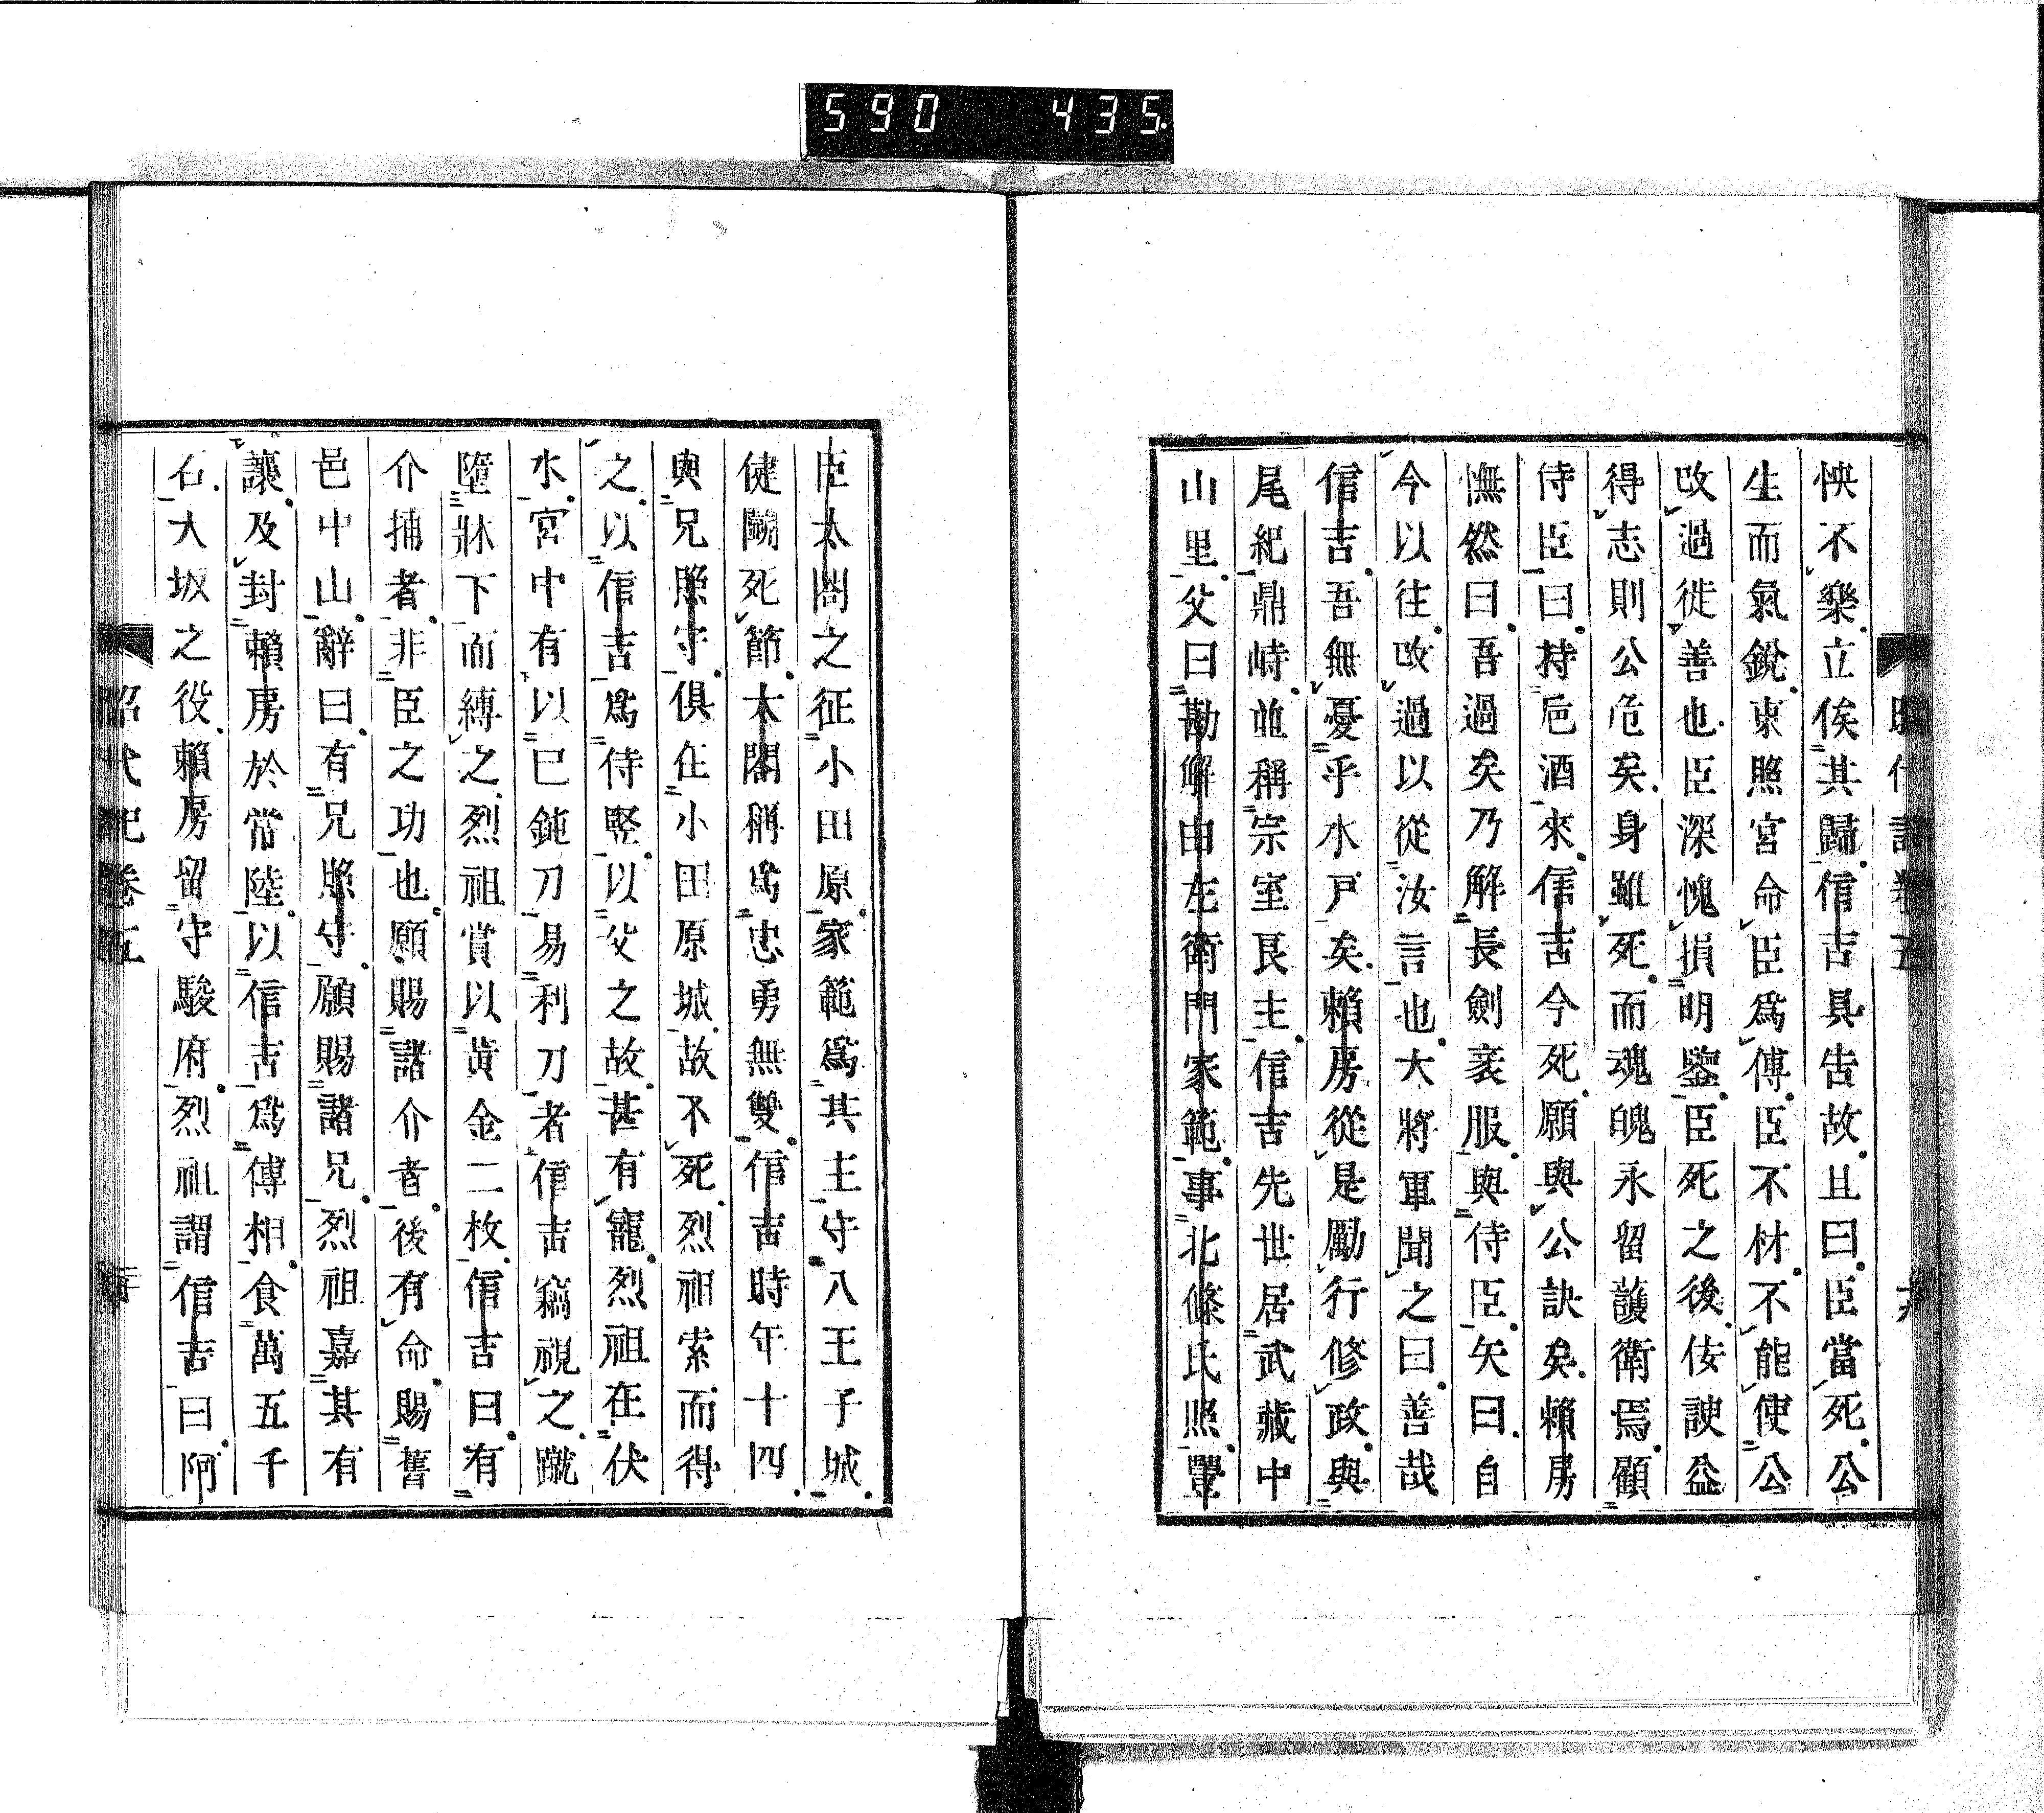 590 435
怏不樂立俟其歸信吉具告故且曰臣當死公
生而氣銳東照宮命臣爲傅臣不材不能使公
改過徙善也臣深愧損明鑒臣死之後佞諛益
得志則公危矣身雖死而魂魄永留護衛焉顧
侍臣曰持巵酒來信吉今死願與公訣矣賴房
憮然曰吾過矣乃解長劍衮服與侍臣矢曰自
今以往改過以從汝言也大將軍聞之曰善哉
信吉吾無憂乎水戸矣賴房從是勵行修政與
尾紀鼎峙並稱宗室良主信吉先世居武藏中
山里父曰勘解由左衛門家範事北條氏照豐
臣太閤之征小田原家範爲其主守八王子城
健鬭死節太閤稱爲忠勇無雙信吉時年十四
與兄照守俱在小田原城故不死烈祖索而得
之以信吉爲侍竪以父之故甚有寵烈祖在伏
水宮中有以已鈍刀易利刀者信吉竊視之蹴
墮牀下而縛之烈祖賞以黃金二枚信吉曰有
介捕者非臣之功也願賜諸介者後有命賜舊
邑中山辭曰有兄照守願賜諸兄烈祖嘉其有
讓及封賴房於常陸以信吉爲傅相食萬五千
石大坂之役賴房留守駿府烈祖謂信吉曰阿
昭代記卷五